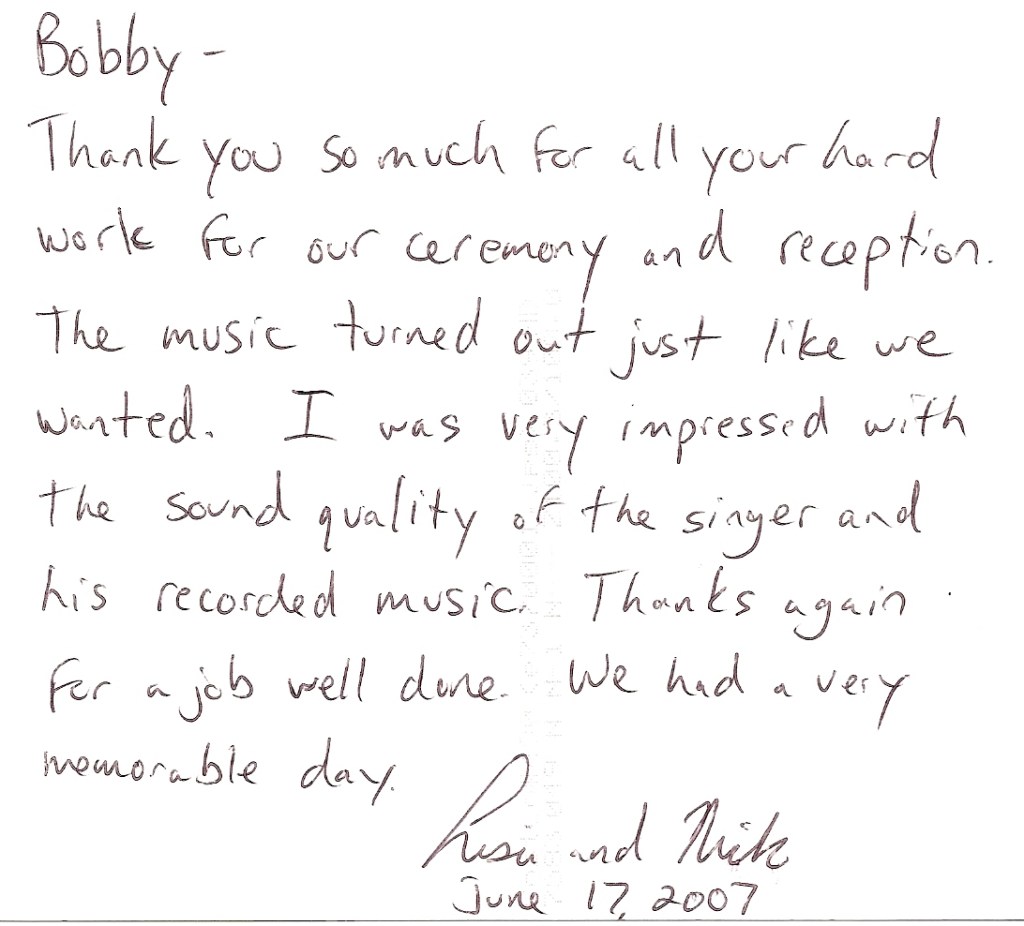 Bobby -
Thank you so much for all your hard
work for our ceremony and reception.
The music turned out just like we
wanted. I was very impressed with
the sound quality of the singer and
his recorded music. Thanks again
for a job well done. We had a very
memorable day.
Lisa and Nick
June 17, 2007